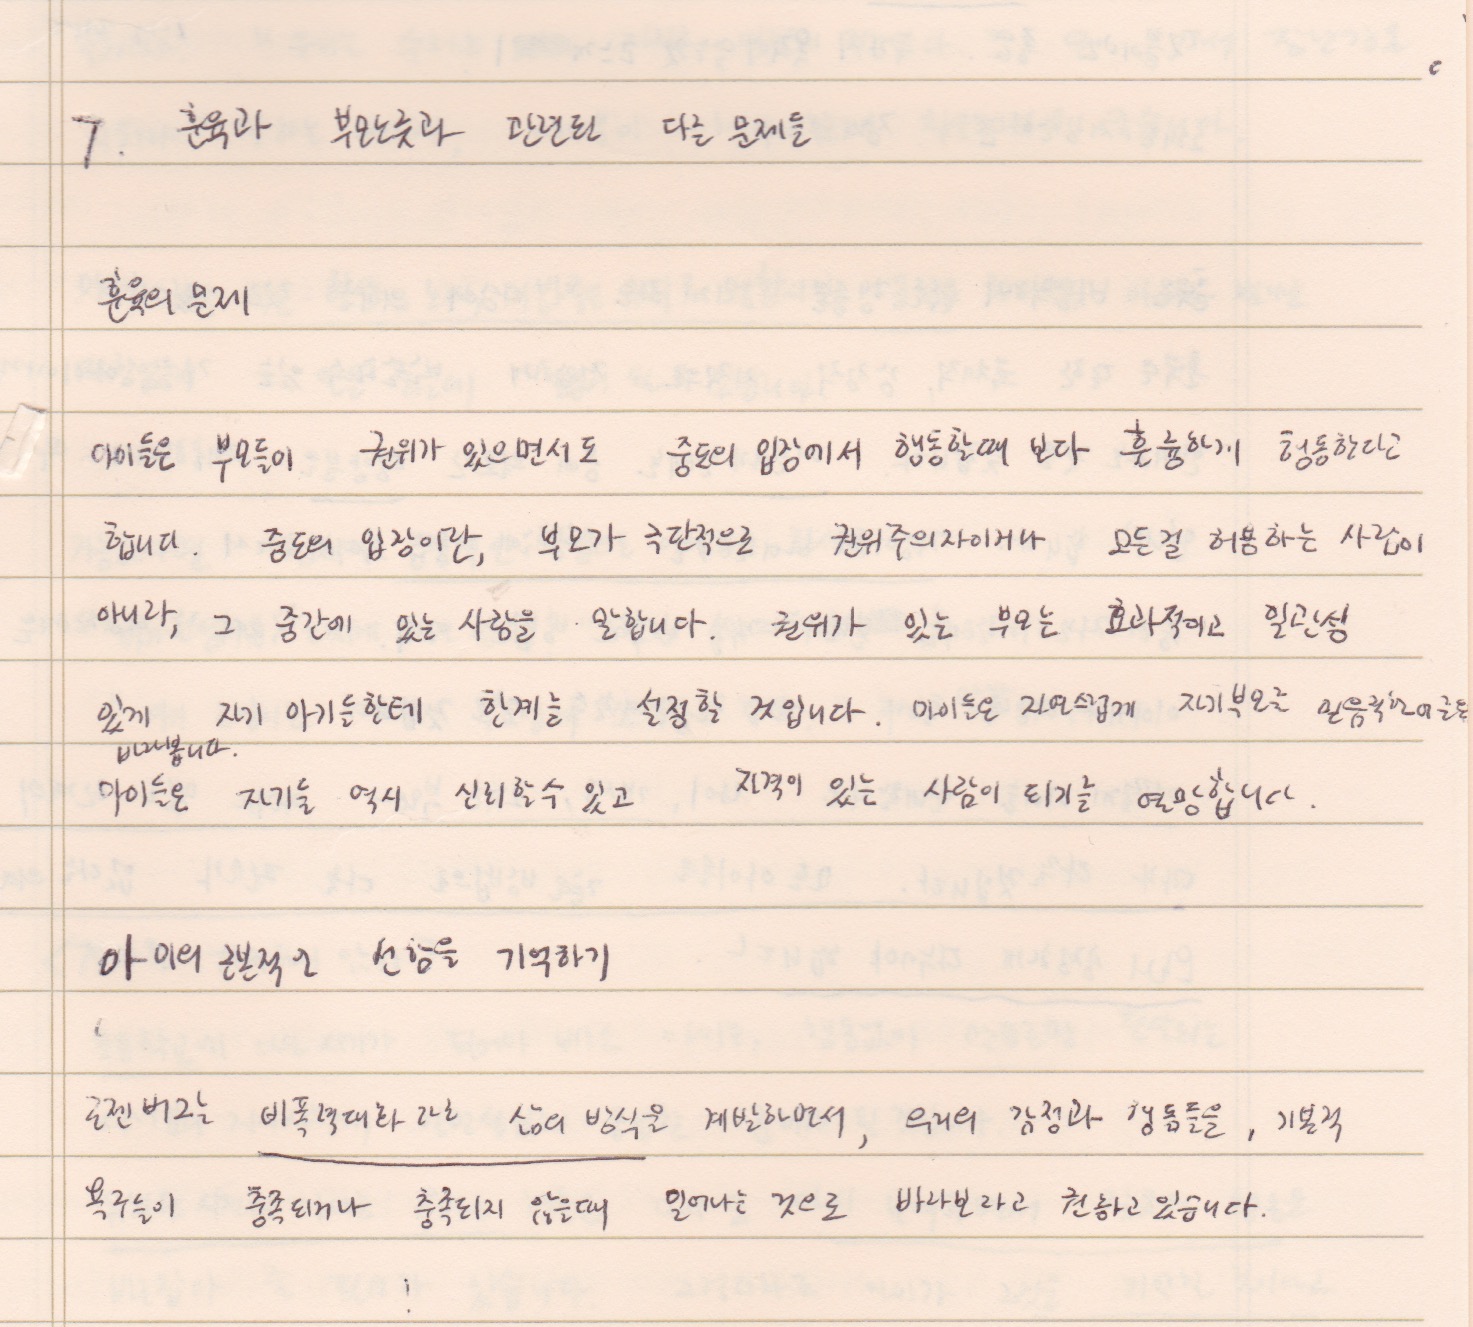 7. 훈육과 부모노릇과 관련된 다른 문제들
훈육의 문제
아이들은 부모들이 권위가 있으면서도 중도의 입장에서 행동할때 보다 훌륭하게 행동한다고
합니다. 중도의 입장이란, 부모가 극단적으로 권위주의자이거나 모든걸 허용하는 사람이
아니라, 그 중간에 있는 사람을 말합니다. 권위가 있는 부모는 효과적이고 일관성
있게 자기 아기들한테 한계를 설정할 것입니다. 아이들은 자연스럽게 자기부모를
바라봅니다.
아이들은 자기들 역시 신뢰할수 있고 자격이 있는 사람이 되기를 열망합니다.
아이의 근본적인 선함을 기억하기
로젠버그는 비폭력대화 라는 삶의 방식을 계발하면서, 우리의 감정과 행동들을, 기본적
욕구들이 충족되거나 충족되지 않을때 일어나는 것으로 바라보라고 권하고있습니다.